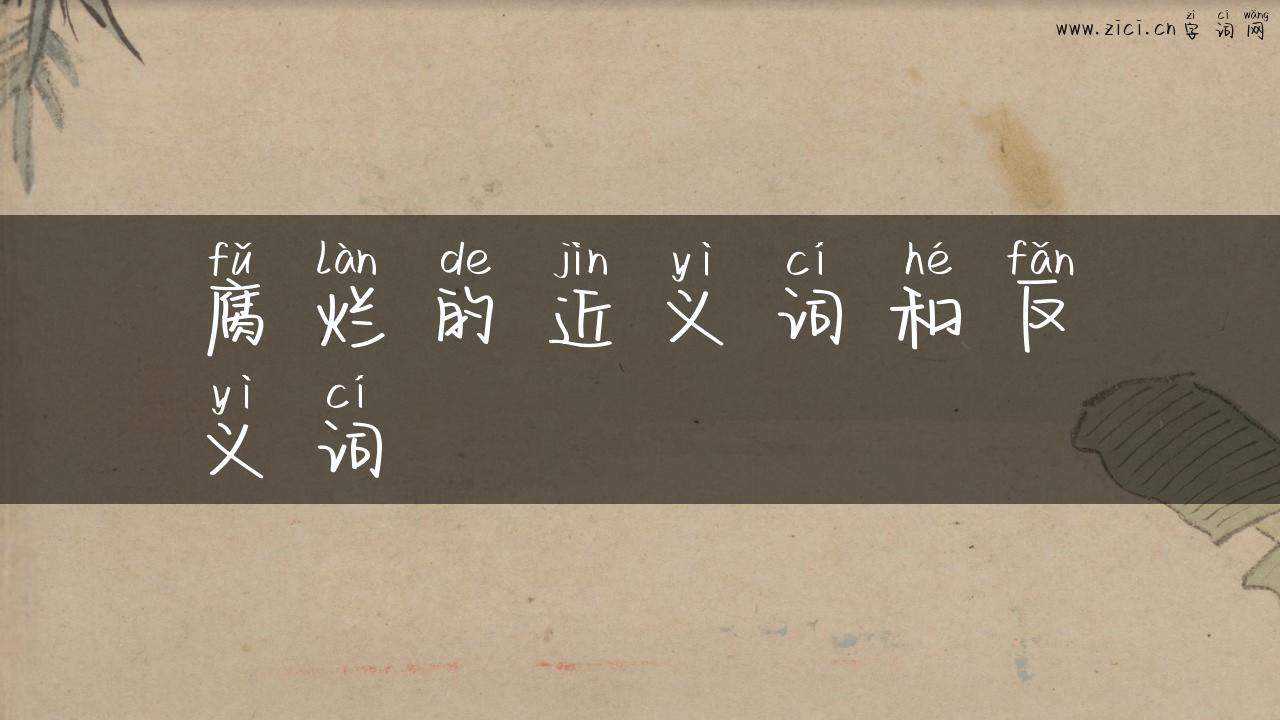 zì cí wǎng
www.zici.cn 字词网
fǔ làn de jìn yì cí hé fǎn
腐烂的近义词和反
yì cí
义词